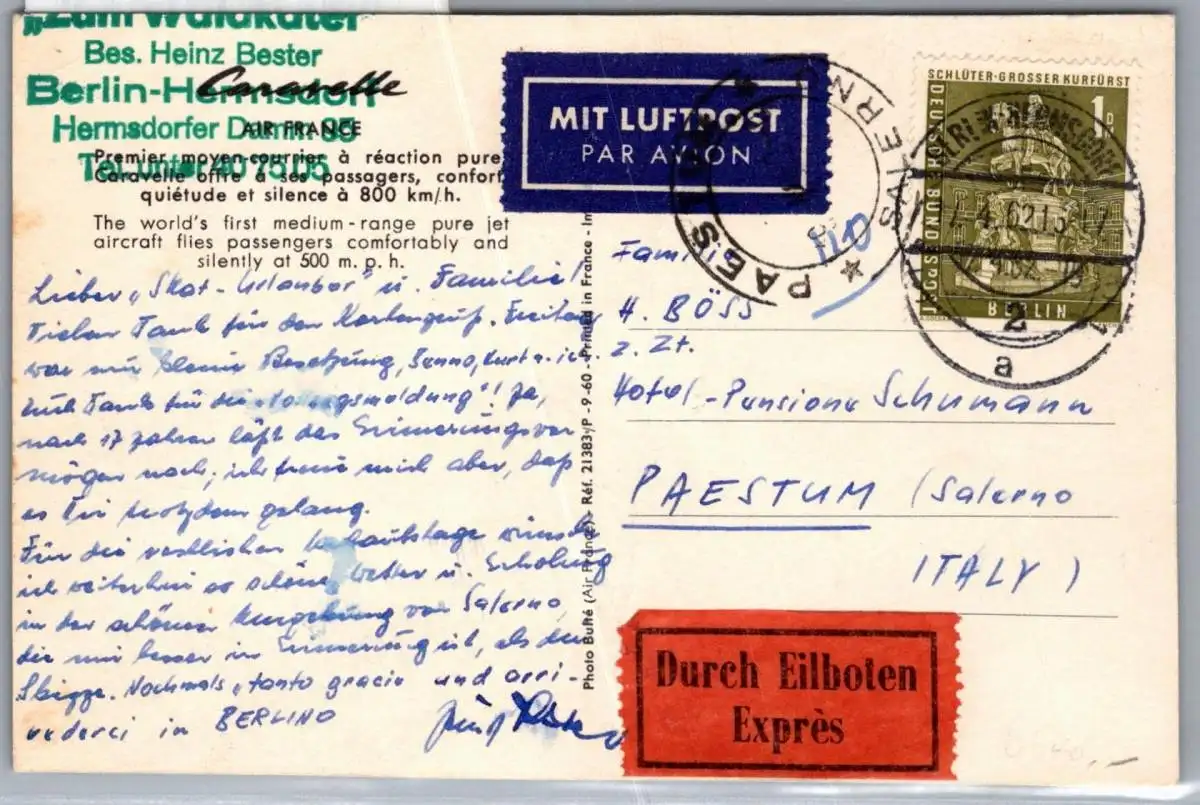 „Zum Waldkater"
Bes. Heinz Bester
Berlin-Hermsdorf
Hermsdorfer Damm 89
Tel. unter 40 75 05
Caravelle
AIR FRANCE
Premier moyen-courrier à réaction pure,
Caravelle offre à ses passagers, confort,
quiétude et silence à 800 km/h.
The world's first medium-range pure jet
aircraft flies passengers comfortably and
silently at 500 m.p.h.
Lieber „Skat-Urlauber" u. Familie!
Vielen Dank für den Kartengruß. Freitag
war nur kleine Besetzung, Benno, Kurt u. ich.
Dank für die
nach 17 Jahren läßt das Erinnerungsver
mögen nach; ich freue mich aber, daß
es Dir trotzdem gelang.
Für die restlichen Urlaubstage wünsche
ich weiterhin so schönes Wetter u. Erholung
in der schönen Umgebung von Salerno,
die mir besser in Erinnerung ist, als der
Nochmals „tanto gracie und arri-
vederci in BERLINO
Photo Buffé (Air France) - Réf. 21383/P - 9-60 - Printed in France - Im
MIT LUFTPOST
PAR AVION
PAESTUM
SALERNO
SCHLÜTER · GROSSER KURFÜRST
1 D
DEUTSCHE BUNDESPOST
BERLIN
BERLIN-HERMSDORF
17.4.62.15-17
2
a
110
Familie
H. BÖSS
z. Zt.
Hotel-Pensione Schumann
PAESTUM (Salerno
ITALY)
Durch Eilboten
Exprès